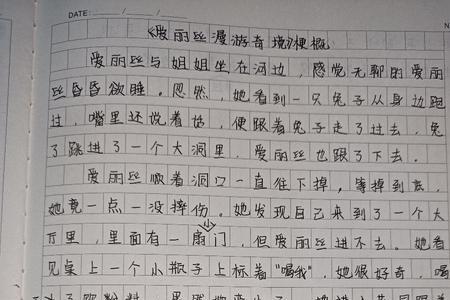 DATE: / /
《爱丽丝漫游奇境》梗概
爱丽丝与姐姐坐在河边，感觉无聊的爱丽
丝昏昏欲睡。忽然，她看到一只兔子从身边跑
过，嘴里还说着话，便跟着兔子走了过去，兔
子跳进了一个大洞里，爱丽丝也跟了下去。
爱丽丝顺着洞口一直往下掉，等掉到底，
她竟一点一没摔伤。她发现自己来到了一个大
厅里，里面有一扇门，但爱丽丝进不去。她看
见桌上一个小瓶子上标着"喝我"，她很好奇，喝